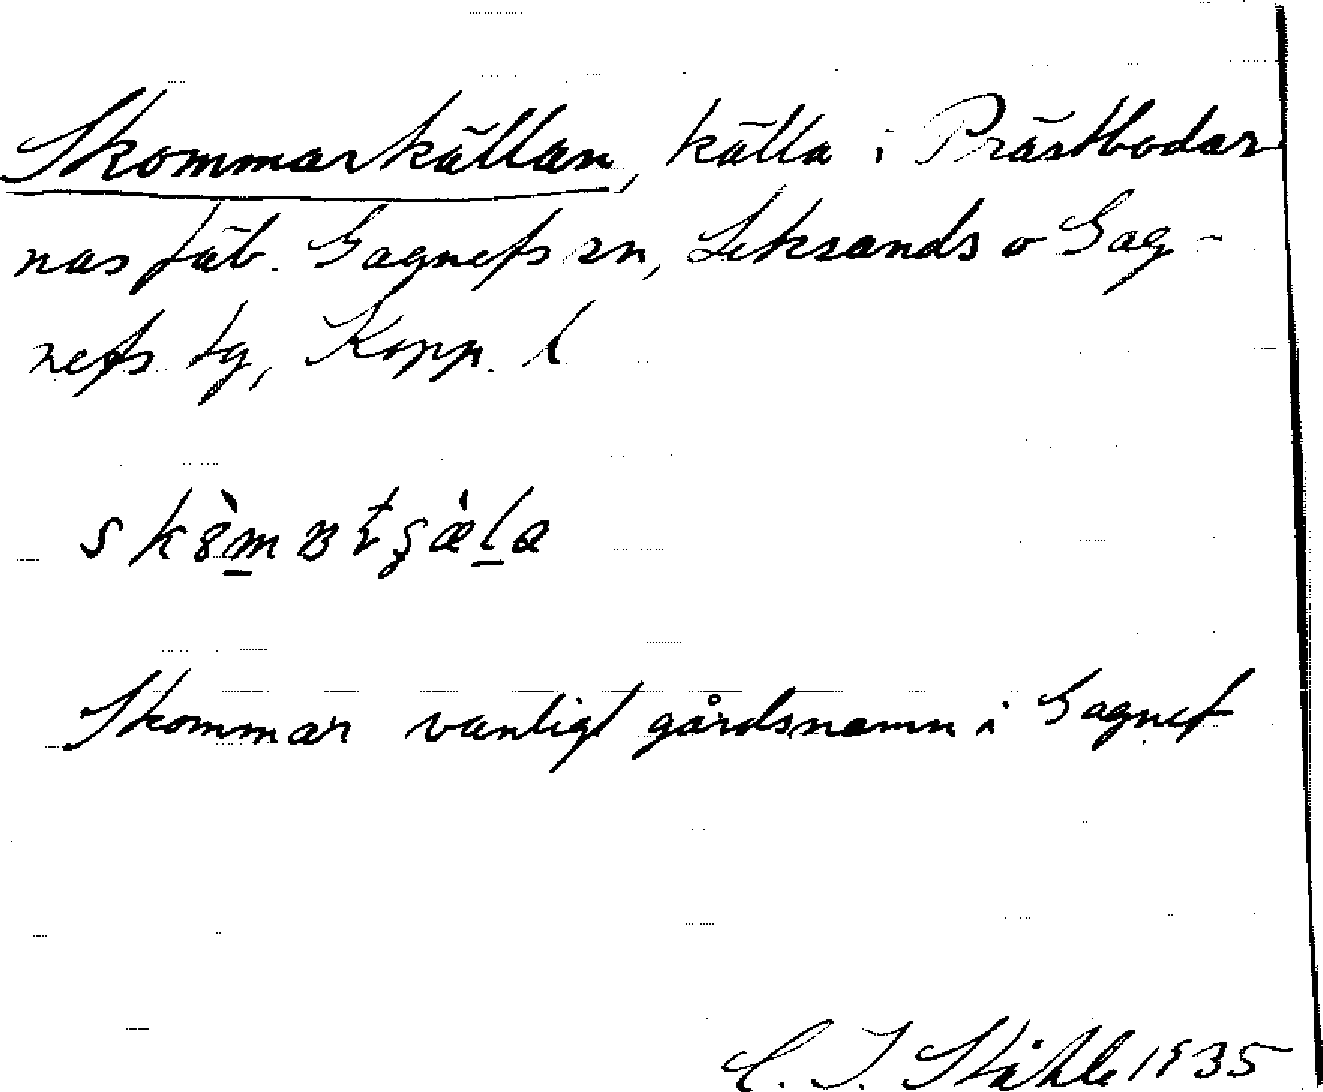 Skommarkällan, källa i Prästbodar
nas fäb. Gagnefs sn, Leksands o Gag-
nefs tg, Kopp. l
Skommar vanligt gårdsnamn i Gagnef
C. I. Ståhle 1935